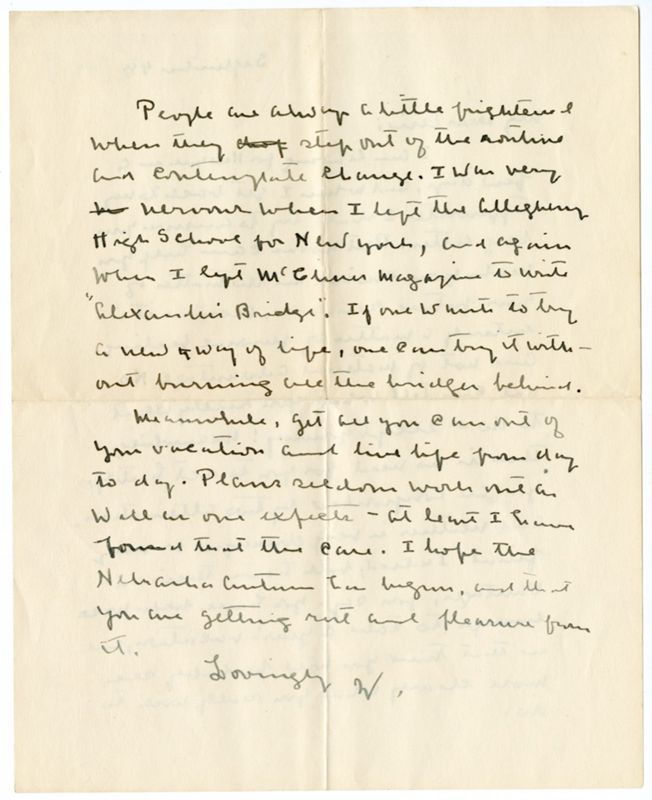 People are always a little frightened
when they drop step out of the routine
and contemplate change. I was very
nervous when I left the Allegheny
High School for New York, and again
when I left McClures Magazine to write
"Alexander's Bridge". If one wants to try
a new way of life, one can try it with-
out burning all the bridges behind.
Meanwhile, get all you can out of
your vacation and live life from day
to day. Plans seldom work out as
well as one expects - at least I have
found that the case. I hope the
Nebraska autumn has begun, and that
you are getting rest and pleasure from
it.
Lovingly W.